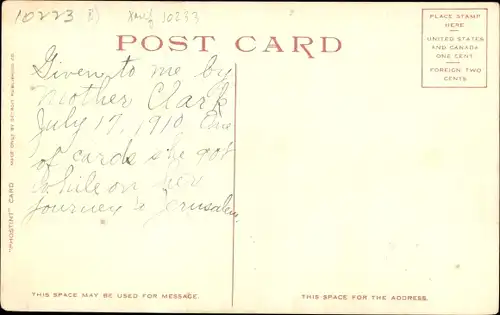 10223 B) Xmf 10233
POST CARD
PLACE STAMP
HERE
UNITED STATES
AND CANADA
ONE CENT
FOREIGN TWO
CENTS
Given to me by
Mother Clark
July 17, 1910. One
of cards she got
while on her
journey to Jerusalem.
"PHOSTINT" CARD
MADE ONLY BY DETROIT PUBLISHING CO.
THIS SPACE MAY BE USED FOR MESSAGE.
THIS SPACE FOR THE ADDRESS.